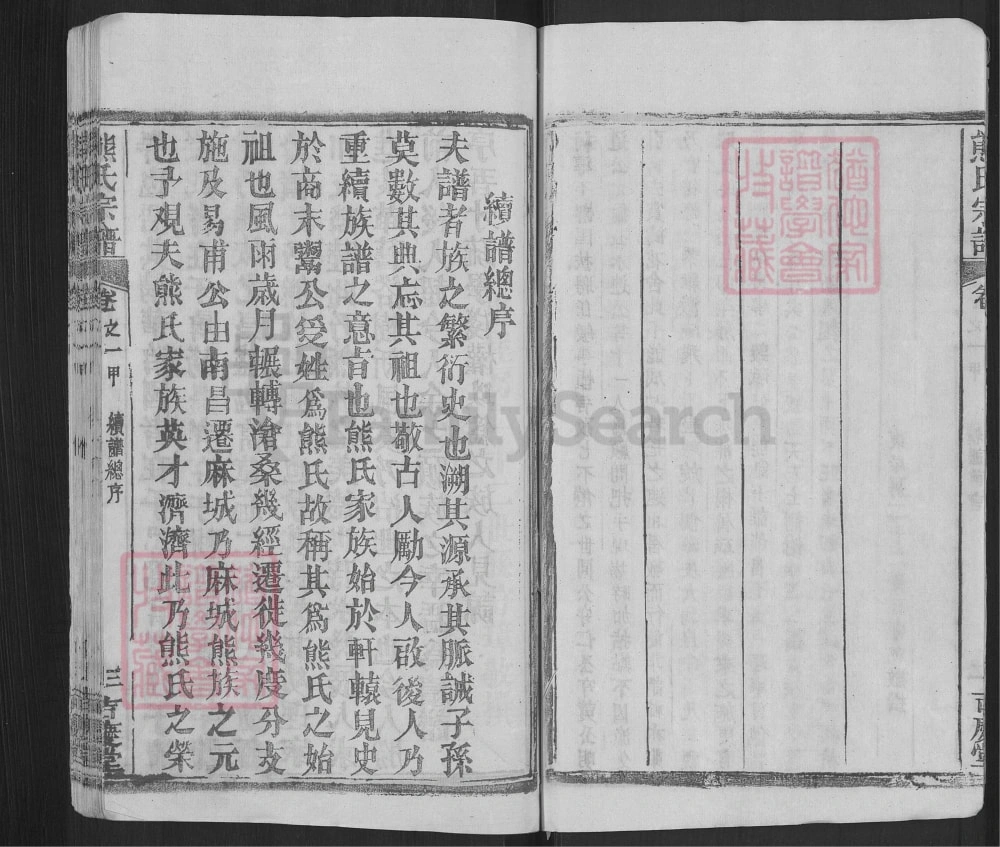 熊氏宗譜
卷
續譜總序
夫譜者族之繁衍史也溯其源承其脈誠子孫
莫數其典忘其祖也敬古人勵今人啟後人乃
重續族譜之意旨也熊氏家族始於軒轅見史
於商末鬻公受姓爲熊氏故稱其爲熊氏之始
祖也風雨歲月輾轉滄桑幾經遷徙幾度分支
施及易甫公由南昌遷麻城乃麻城熊族之元
也予观夫熊氏家族英才濟濟此乃熊氏之榮
熊氏宗譜
卷之一甲
續譜總序
三
FamilySearch
譜學會